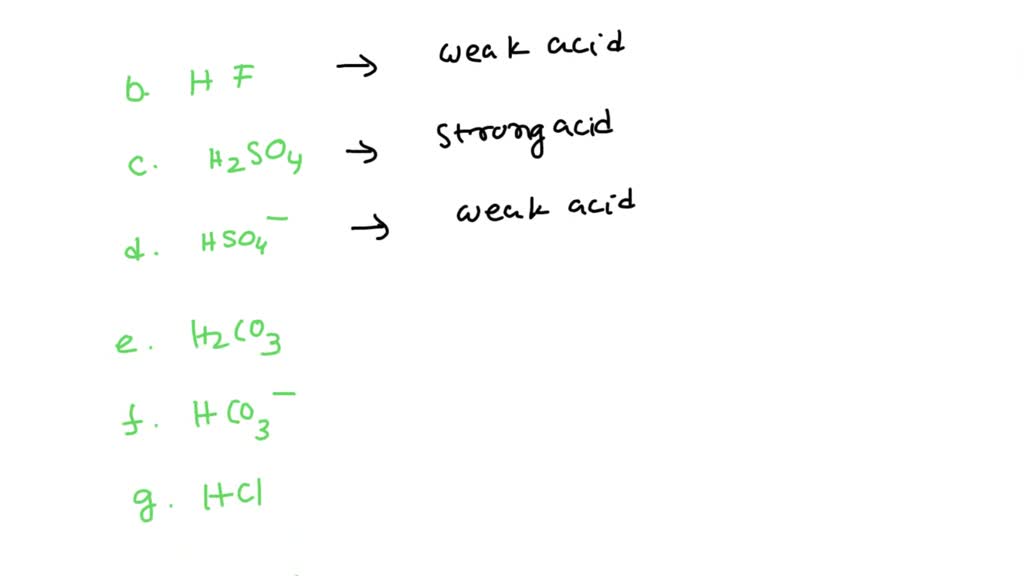 b. HF → weak acid
c. H₂SO₄ → strong acid
d. HSO₄⁻ → weak acid
e. H₂CO₃
f. HCO₃⁻
g. HCl